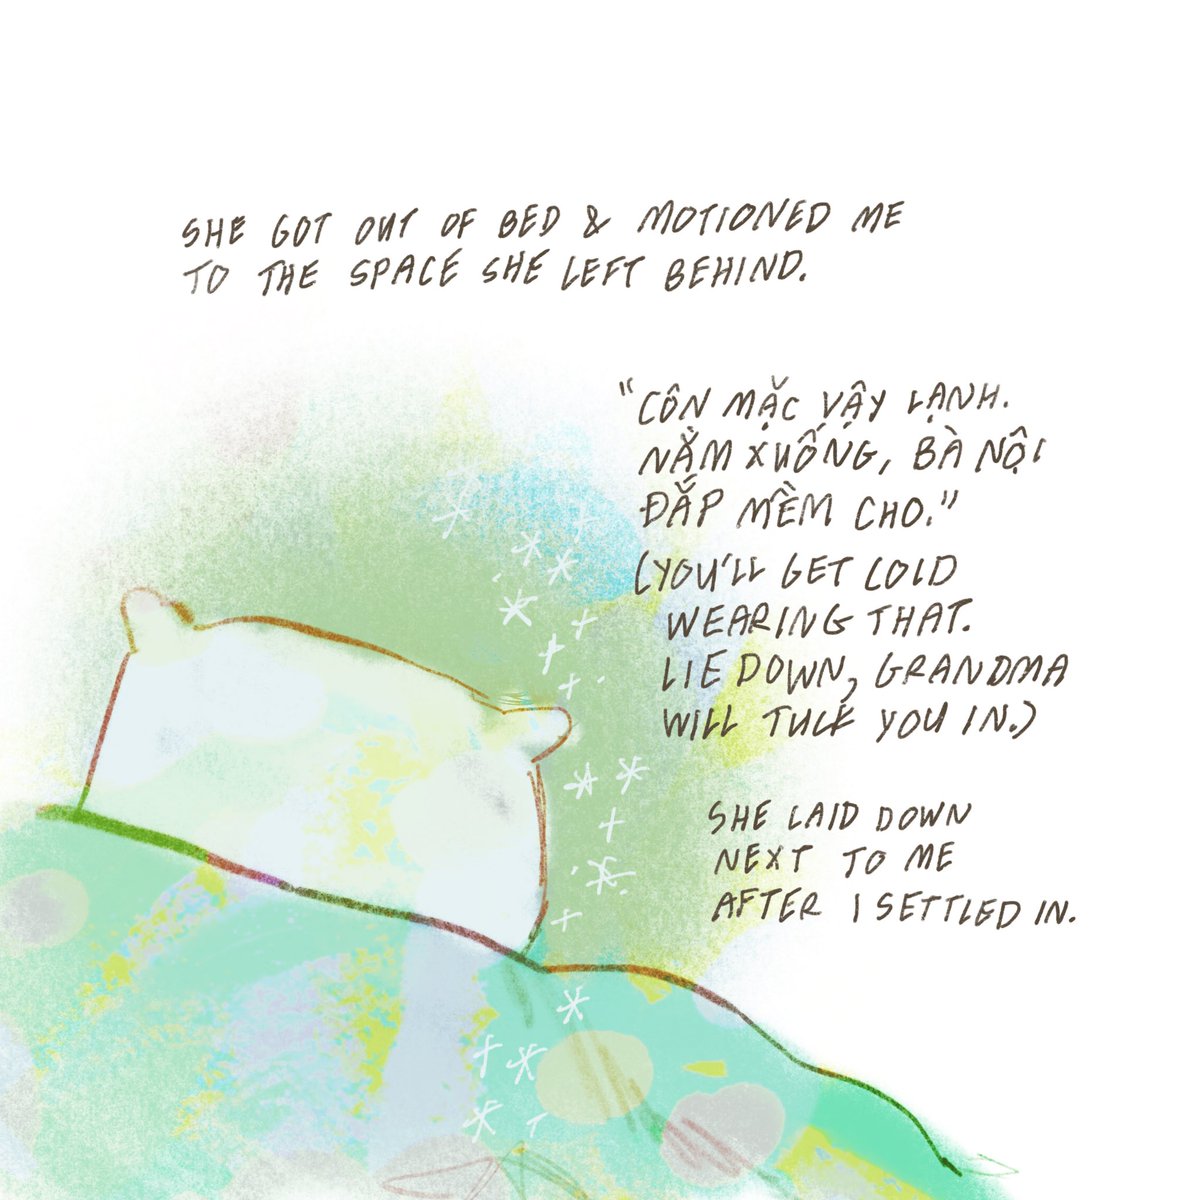 SHE GOT OUT OF BED & MOTIONED ME
TO THE SPACE SHE LEFT BEHIND.
"CÔN MẶC VẬY LẠNH.
NẰM XUỐNG, BÀ NỘI
ĐẮP MỀM CHO."
(YOU'LL GET COLD
WEARING THAT.
LIE DOWN, GRANDMA
WILL TUCK YOU IN.)
SHE LAID DOWN
NEXT TO ME
AFTER I SETTLED IN.